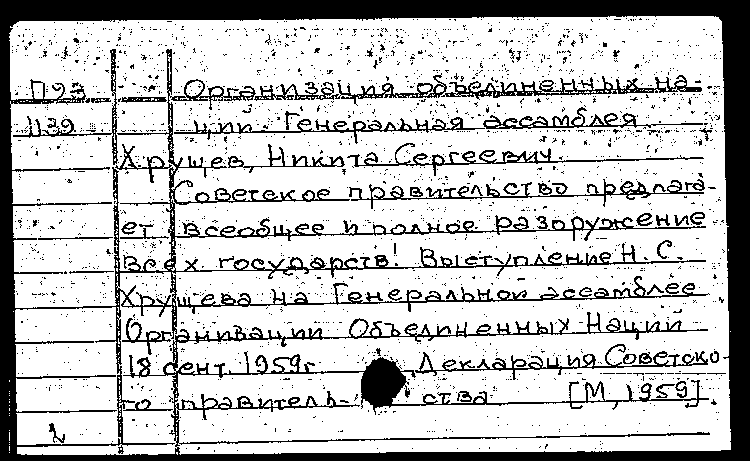 П93 Организация объединенных на-
1139 ций. Генеральная ассамблея
Хрущев, Никита Сергеевич.
Советское правительство предлага-
ет всеобщее и полное разоружение
всех государств! Выступление Н. С.
Хрущева на Генеральной ассамблее
Организации Объединенных Наций
18 сент. 1959г. Декларация Советско-
го правитель- ства [М, 1959].
2